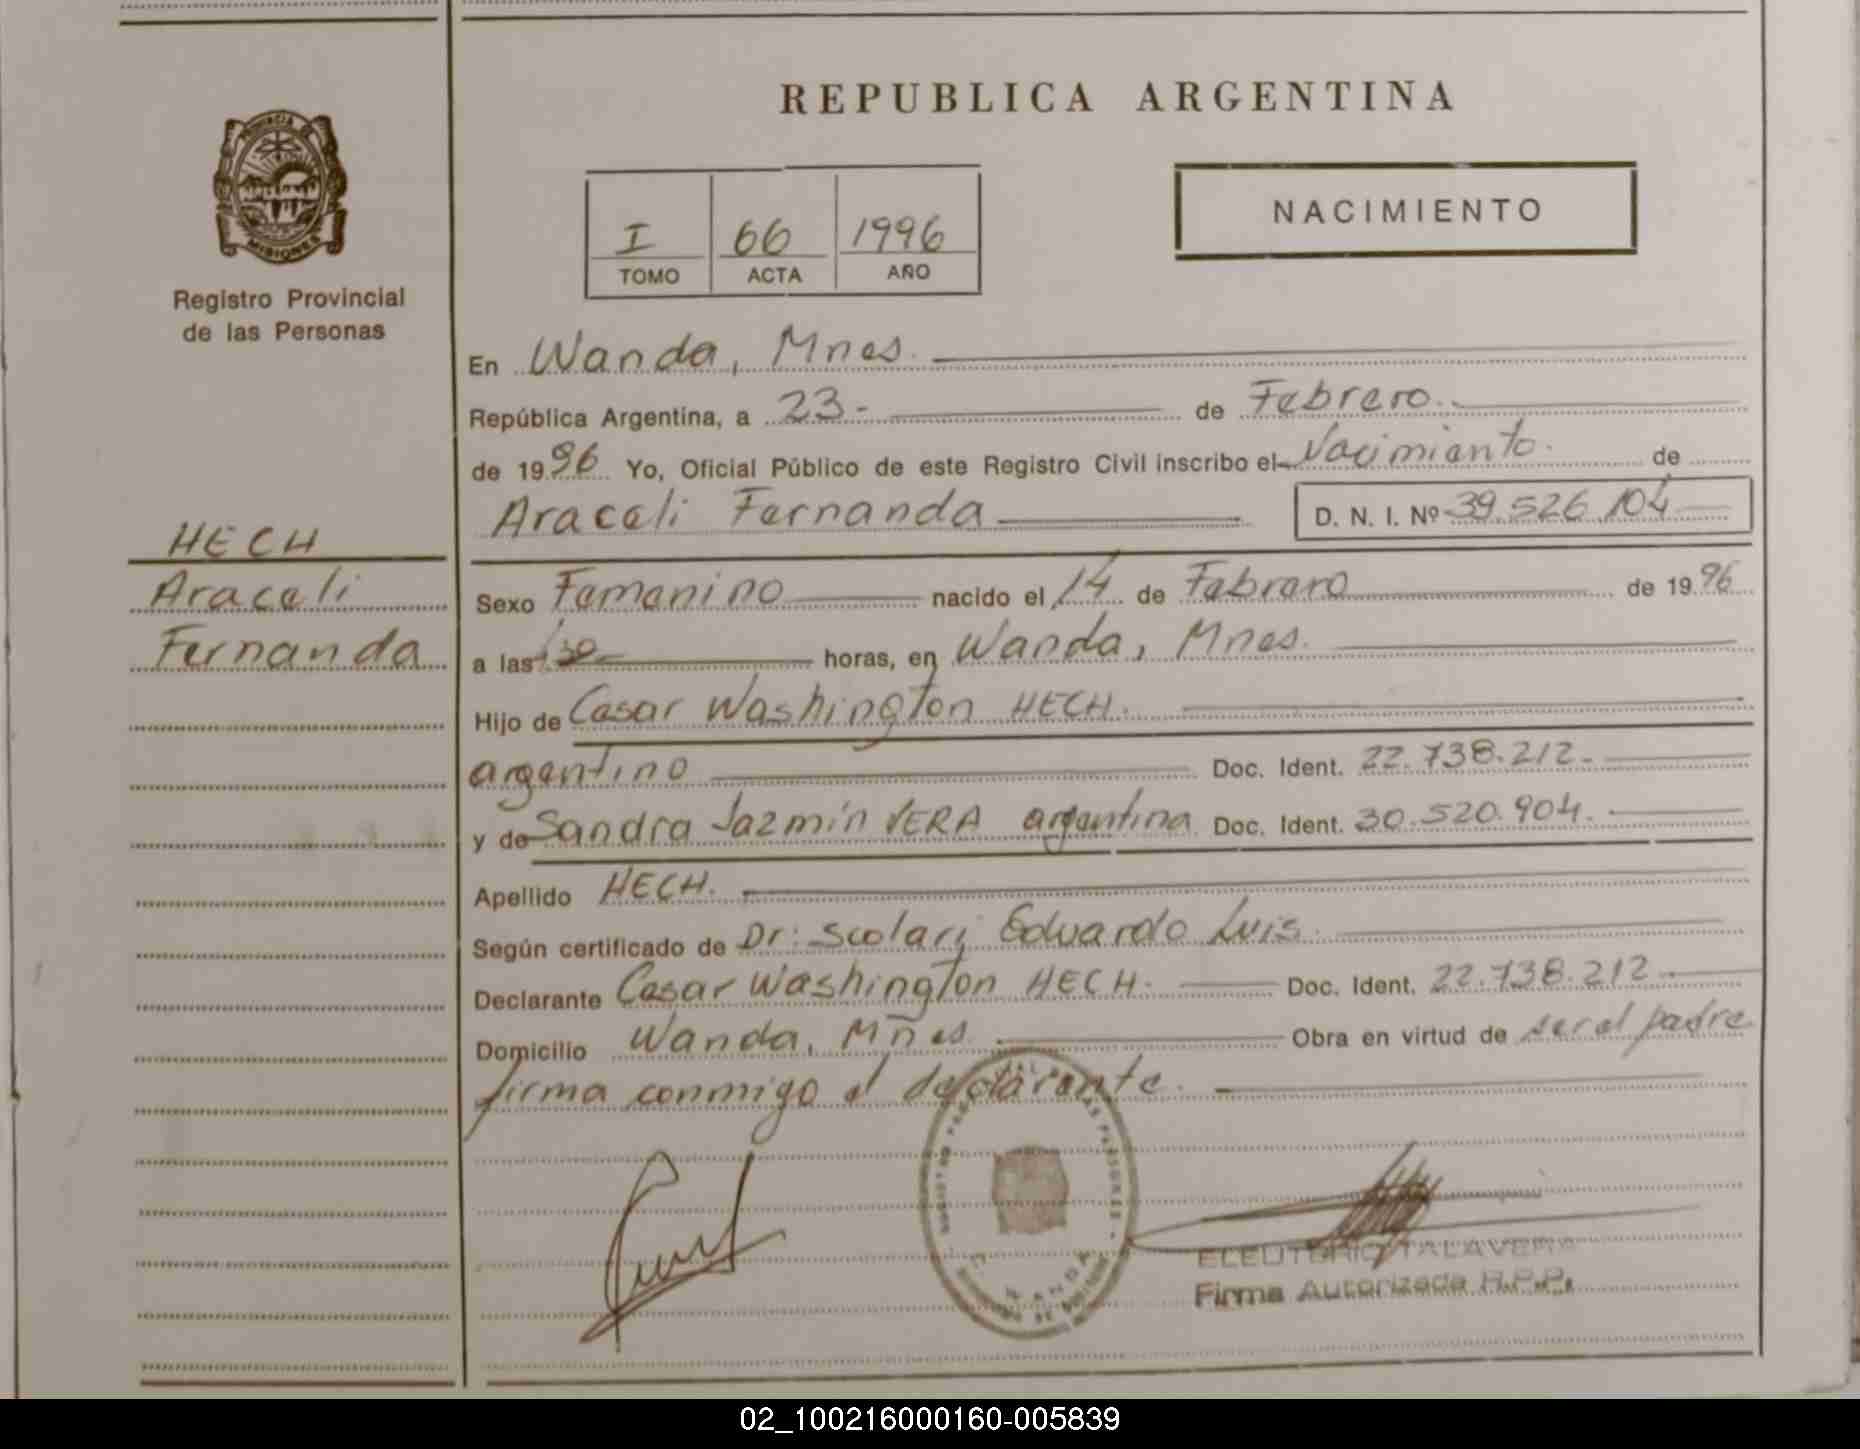 REPUBLICA ARGENTINA
PROVINCIA DE
MISIONES
Registro Provincial
de las Personas
I 66 1996
TOMO ACTA AÑO
NACIMIENTO
En Wanda, Mnes.
República Argentina, a 23- de Febrero.
de 1996 Yo, Oficial Público de este Registro Civil inscribo el Nacimiento. de
Araceli Fernanda D. N. I. Nº 39.526.104
HECH
Araceli
Fernanda
Sexo Femenino nacido el 14 de Febrero de 1996
a las horas, en Wanda, Mnes.
Hijo de Cesar Washington HECH.
argentino Doc. Ident. 22.738.212.
y de Sandra Jazmín VERA argentina Doc. Ident. 30.520.904.
Apellido HECH.
Según certificado de Dr: Scolari Eduardo Luis.
Declarante Cesar Washington HECH. Doc. Ident. 22.738.212.
Domicilio Wanda, Mñes. Obra en virtud de ser el padre
firma conmigo el declarante.
WANDA
ELEUTERIO TALAVERA
Firma Autorizada R.P.P.
02_100216000160-005839